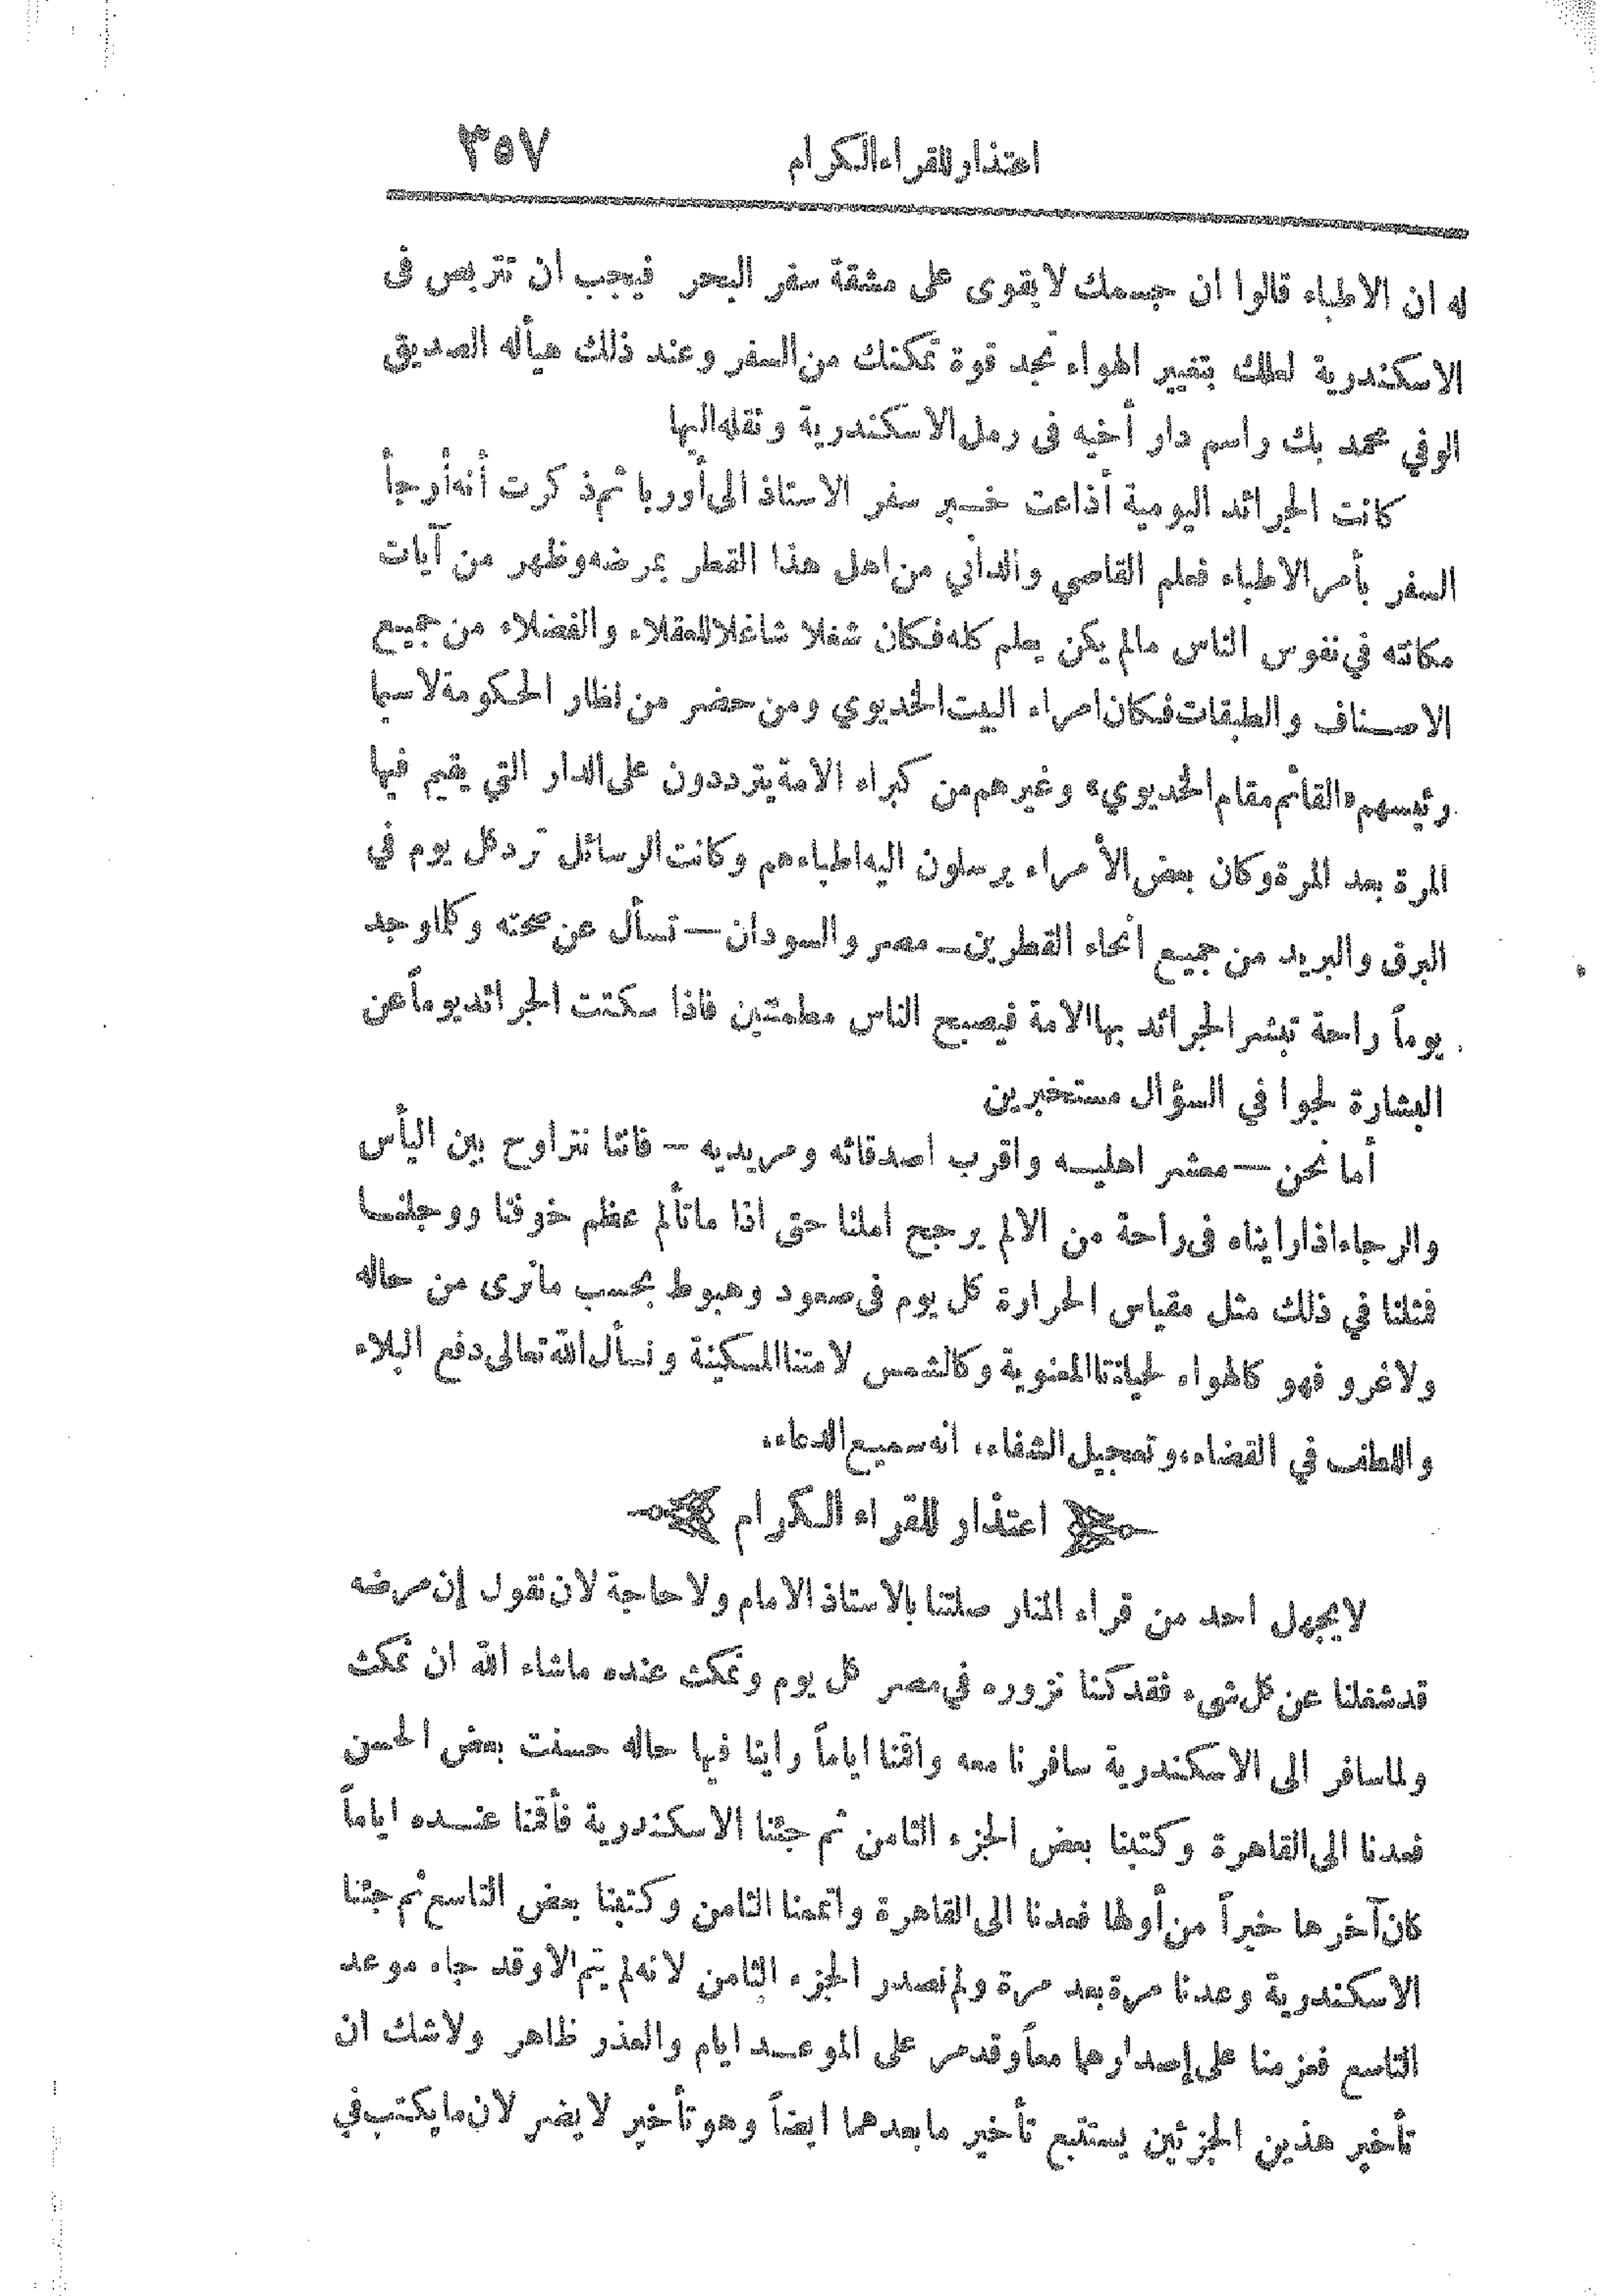 اعتذار للقراء الكرام ٣٥٧
له ان الاطباء قالوا ان جسمك لا يقوى على مشقة سفر البحر فيجب ان تتربص فى
الاسكندرية لعلك بتغيير الهواء تجد قوة تمكنك من السفر وعند ذلك هيأله الصديق
الوفي محمد بك راسم دار أخيه فى رمل الاسكندرية ونقله اليها
كانت الجرائد اليومية أذاعت خبر سفر الاستاذ الى أوربا ثم ذكرت أنه أرجأ
السفر بأمر الاطباء فعلم القاصي والداني من اهل هذا القطر بمرضه وظهر من آيات
مكانته في نفوس الناس مالم يكن يعلم كله فكان شغلا شاغلا للعقلاء والفضلاء من جميع
الاصناف والطبقات فكان امراء البيت الخديوي ومن حضر من نظار الحكومة لاسيما
رئيسهم «القائم مقام الخديوي» وغيرهم من كبراء الامة يترددون على الدار التي يقيم فيها
المرة بعد المرة وكان بعض الأمراء يرسلون اليه اطباءهم وكانت الرسائل ترد كل يوم في
البرق والبريد من جميع أنحاء القطرين — مصر والسودان — تسأل عن صحته وكلما وجد
يوماً راحة تبشر الجرائد بها الامة فيصبح الناس مطمئنين فاذا سكتت الجرائد يوماً عن
البشارة لجوا في السؤال مستخبرين
أما نحن — معشر اهليه واقرب اصدقائه ومريديه — فاننا نتراوح بين اليأس
والرجاء اذا رايناه فى راحة من الالم يرجح املنا حتى اذا ما تألم عظم خوفنا ووجلنا
فمثلنا في ذلك مثل مقياس الحرارة كل يوم فى صعود وهبوط بحسب مانرى من حاله
ولا غرو فهو كالهواء لحياتنا المعنوية وكالشمس لامتنا المسكينة ونسأل الله تعالى دفع البلاء
واللطف في القضاء، وتعجيل الشفاء، انه سميع الدعاء،
اعتذار للقراء الكرام
لا يجهل احد من قراء المنار صلتنا بالاستاذ الامام ولا حاجة لان نقول إن مرضه
قد شغلنا عن كل شىء فقد كنا نزوره في مصر كل يوم ونمكث عنده ماشاء الله ان نمكث
ولما سافر الى الاسكندرية سافرنا معه واقمنا اياماً راينا فيها حاله حسنت بعض الحسن
فعدنا الى القاهرة وكتبنا بعض الجزء الثامن ثم جئنا الاسكندرية فأقمنا عنده اياماً
كان آخرها خيراً من أولها فعدنا الى القاهرة واتممنا الثامن وكتبنا بعض التاسع ثم جئنا
الاسكندرية وعدنا مرة بعد مرة ولم نصدر الجزء الثامن لانه لم يتم الا وقد جاء موعد
التاسع فعزمنا على إصدارهما معاً وقد مر على الموعد ايام والعذر ظاهر ولاشك ان
تأخير هذين الجزئين يستتبع تأخير ما بعدهما ايضاً وهو تأخير لا يضر لان ما يكتب في